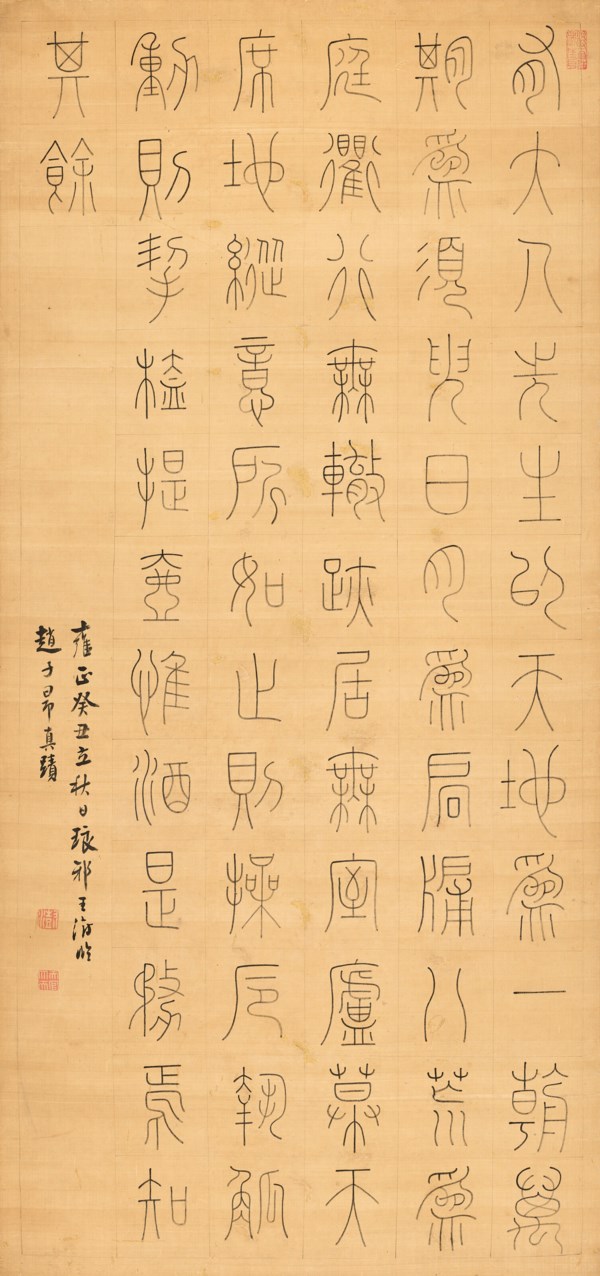 有大人先生以天地爲一朝萬
期爲須臾日月爲扃牖八荒爲
庭衢行無轍跡居無室廬幕天
席地縱意所如止則操卮執觚
動則挈榼提壺惟酒是務焉知
其餘
雍正癸丑立秋日琅邪王澍臨
趙子昂真蹟